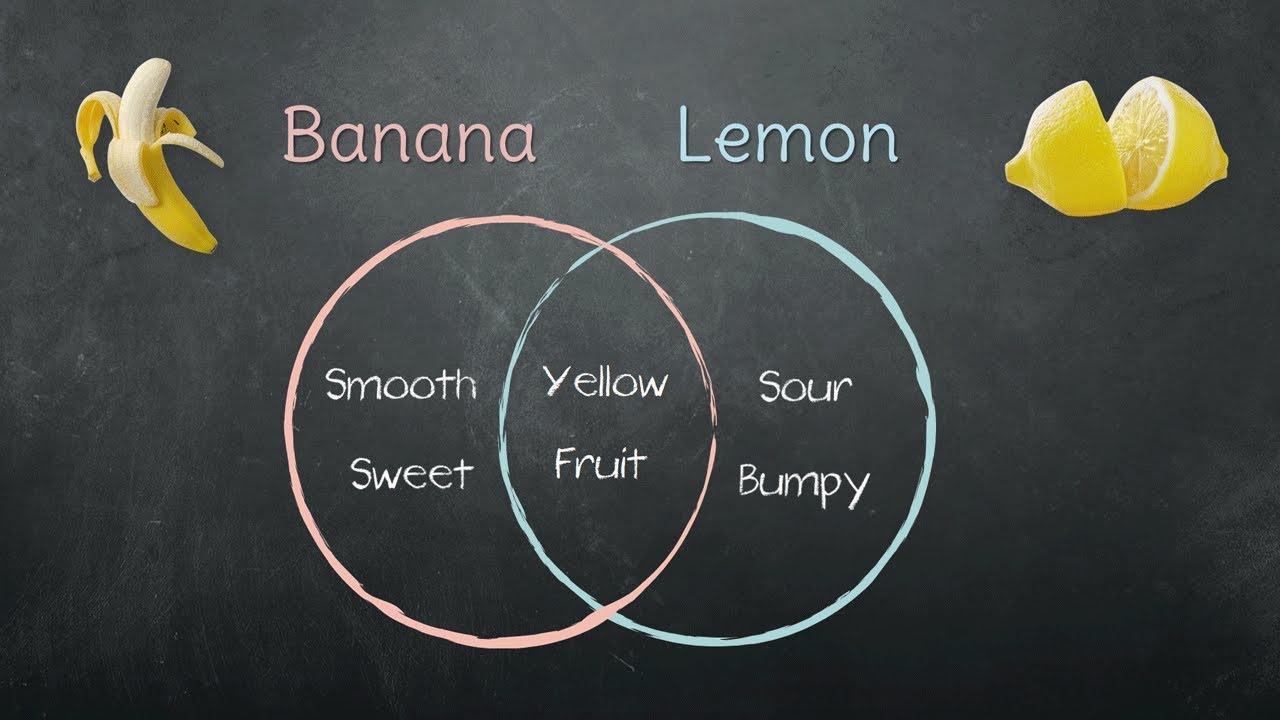 Banana
Lemon
Smooth
Yellow
Sour
Sweet
Fruit
Bumpy